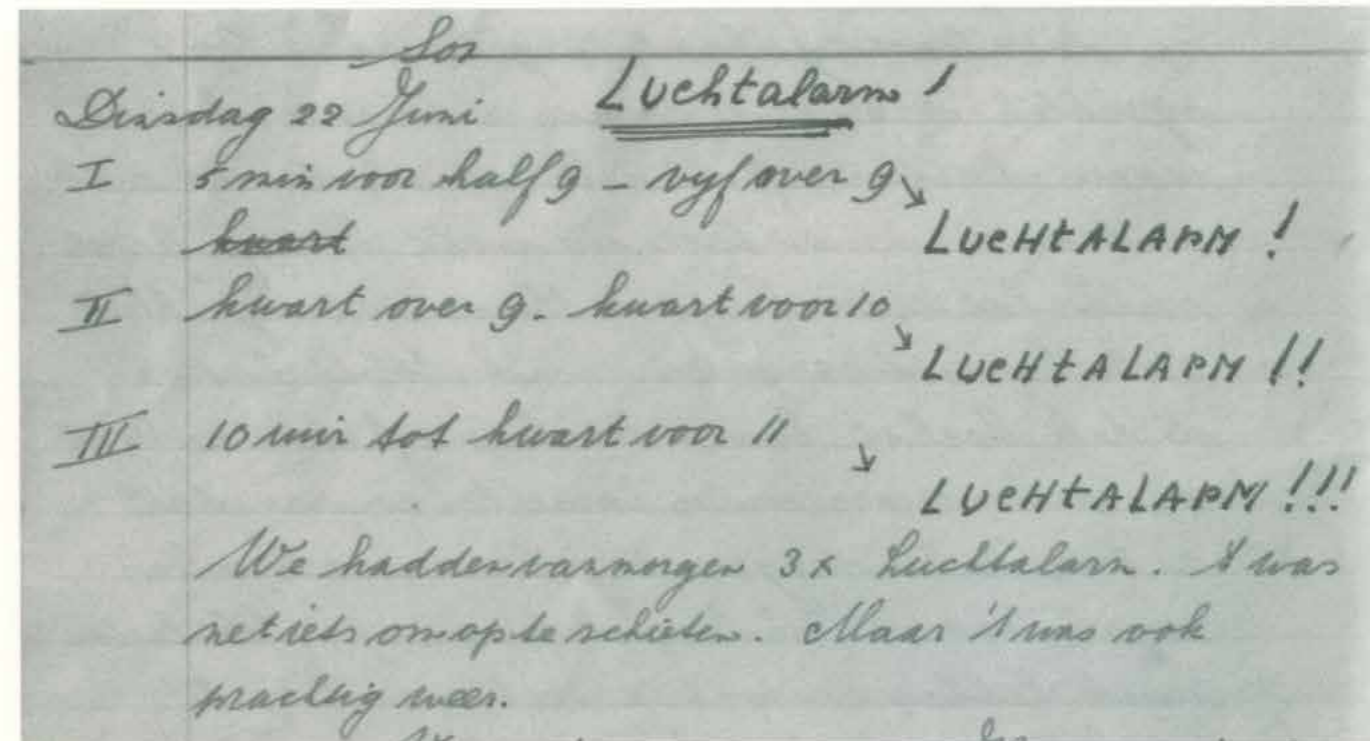 Dinsdag 22 Juni Luchtalarm!
I 5 min voor half 9 - vyf over 9
kwart
LUCHTALARM !
II kwart over 9. kwart voor 10
LUCHTALARM !!
III 10 min tot kwart voor 11
LUCHTALARM !!!
We hadden vanmorgen 3x Luchtalarm. 't was
net iets om op te schieten. Maar 't was ook
prachtig weer.